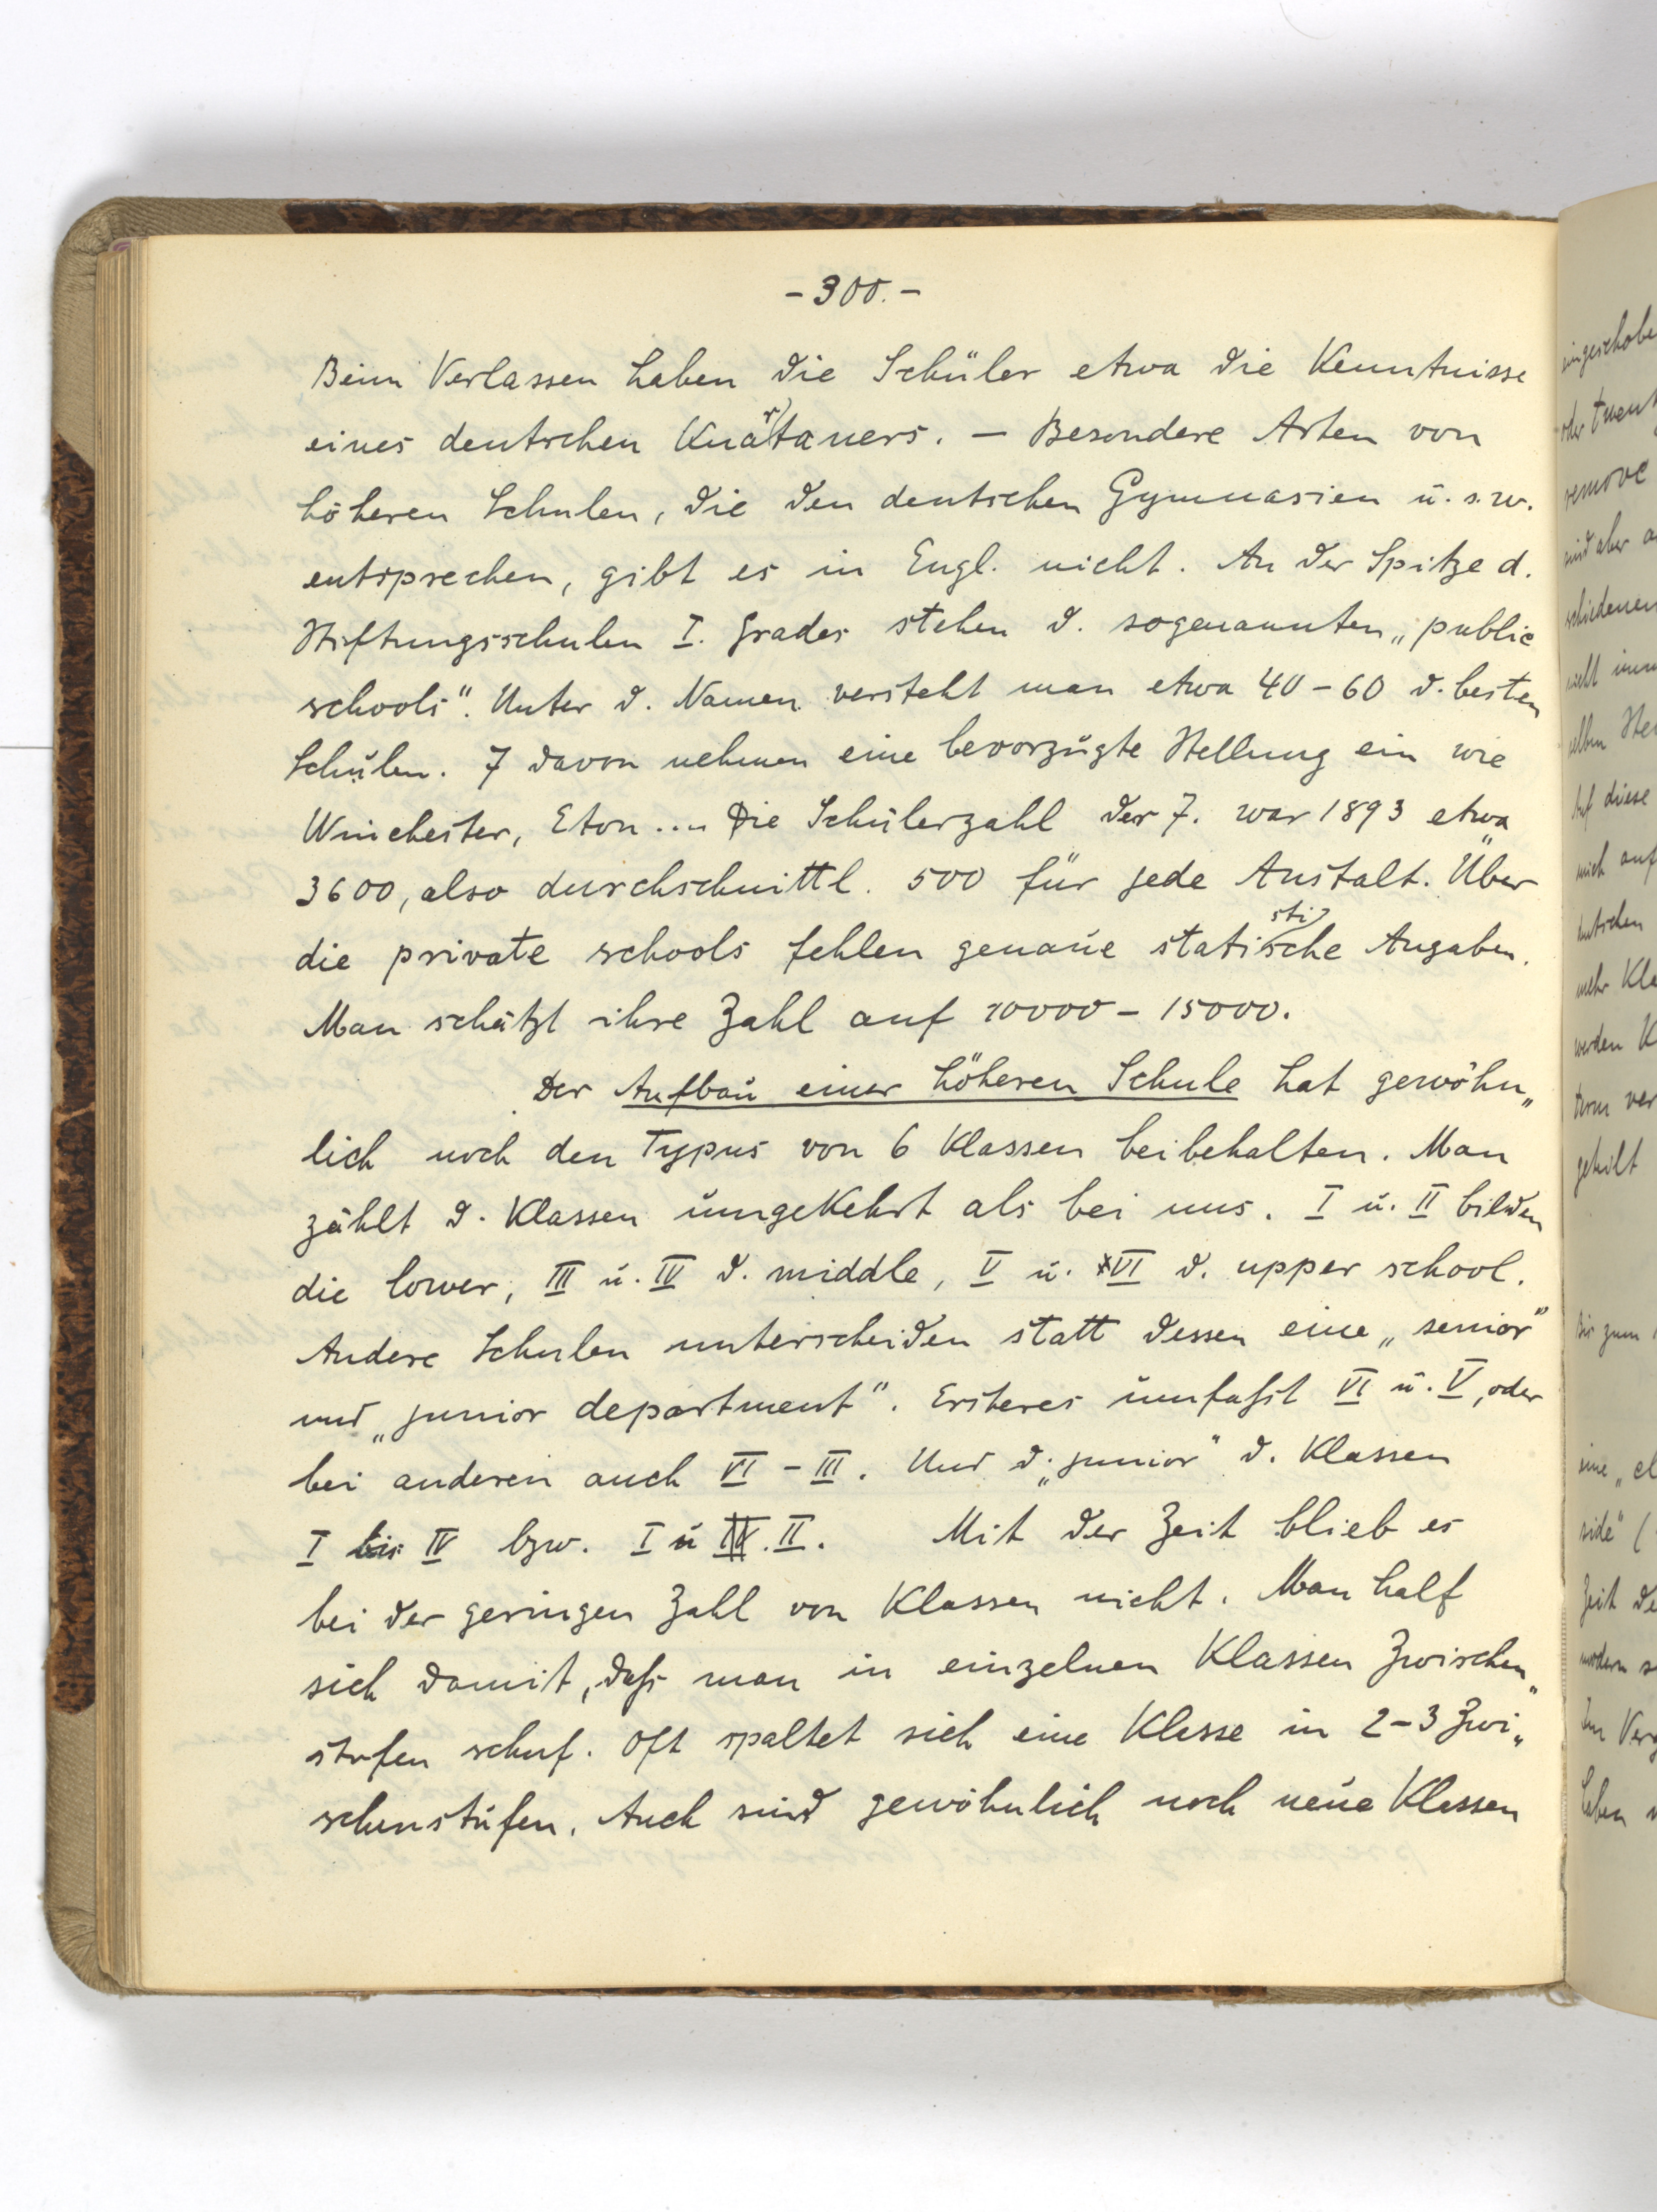 - 300. -
Beim Verlassen haben die Schüler etwa die Kenntnisse
eines deutschen Knärtaners. — Besondere Arten von
höheren Schulen, die den deutschen Gymnasien u. s. w.
entsprechen, gibt es in Engl. nicht. An der Spitze d.
Stiftungsschulen I. Grades stehen d. sogenannten „public
schools". Unter d. Namen versteht man etwa 40 - 60 d. besten
Schulen. 7 davon nehmen eine bevorzugte Stellung ein wie
Winchester, Eton.... Die Schülerzahl der 7. war 1893 etwa
3600, also durchschnittl. 500 für jede Anstalt. Über
die private schools fehlen genaue statistische Angaben.
Man schätzt ihre Zahl auf 10000 - 15000.
Der Aufbau einer höheren Schule hat gewöhn„
lich noch den Typus von 6 Klassen beibehalten. Man
zählt d. Klassen umgekehrt als bei uns. I u. II bilden
die lower, III u. IV d. middle, V u. VI d. upper school.
Andere Schulen unterscheiden statt dessen eine „senior"
und „junior department". Ersteres umfaßt VI u. V, oder
bei anderen auch VI - III. Und d. „junior" d. Klassen
I bis IV bzw. I u II. Mit der Zeit blieb es
bei der geringen Zahl von Klassen nicht. Man half
sich damit, daß man in einzelnen Klassen Zwischen„
stufen schuf. Oft spaltet sich eine Klasse in 2-3 Zwi„
schenstufen. Auch sind gewöhnlich noch neue Klassen